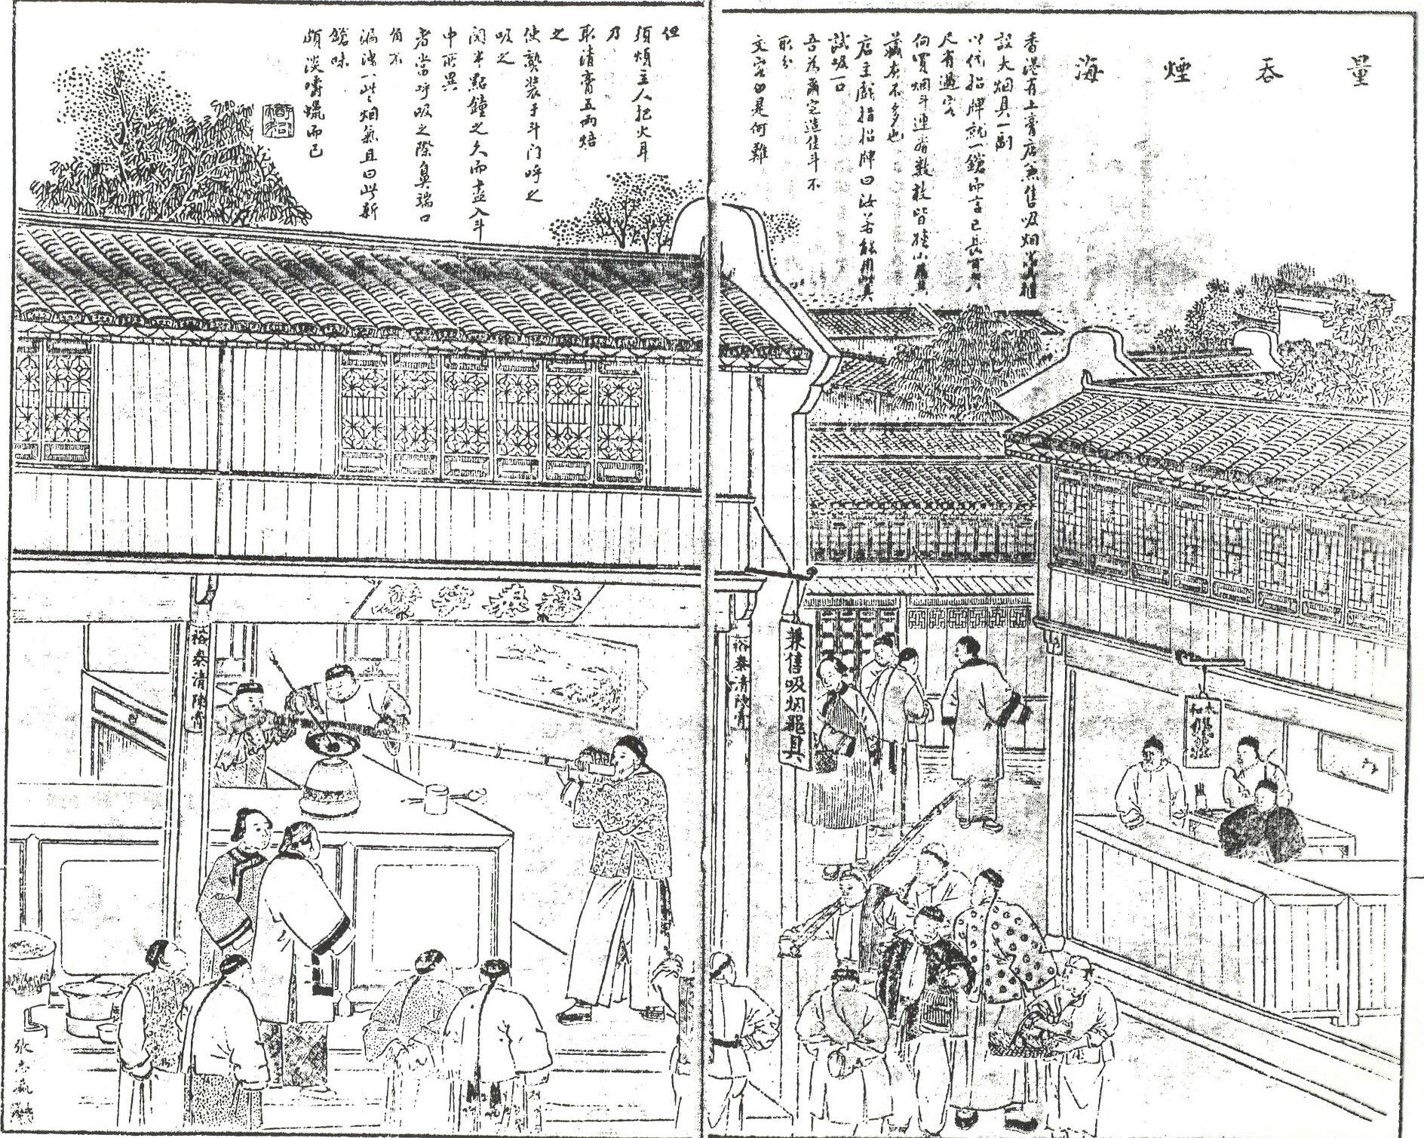 量吞煙海
香港有上膏店兼售吸烟器
設大烟具一副
以代招牌就一鎗而言已長有八
尺有過客
向買烟斗連看數枚皆小
藏者不多也
店主戲指招牌曰汝若能用其
試吸一口
吾為爾定造佳斗不
取分
文客曰是何難
但
須煩主人把火耳
乃
取清膏五兩焙
之
使熟裝于斗門呼之
吸之
閱半點鐘之久而盡入斗
中所異
者當呼吸之際鼻端口
角不
漏洩一些烟氣且曰此新
鎗味
頗淡嚼蠟而已
裕泰清陳膏
裕泰清陳膏
兼售吸烟器具
太和
張志瀛